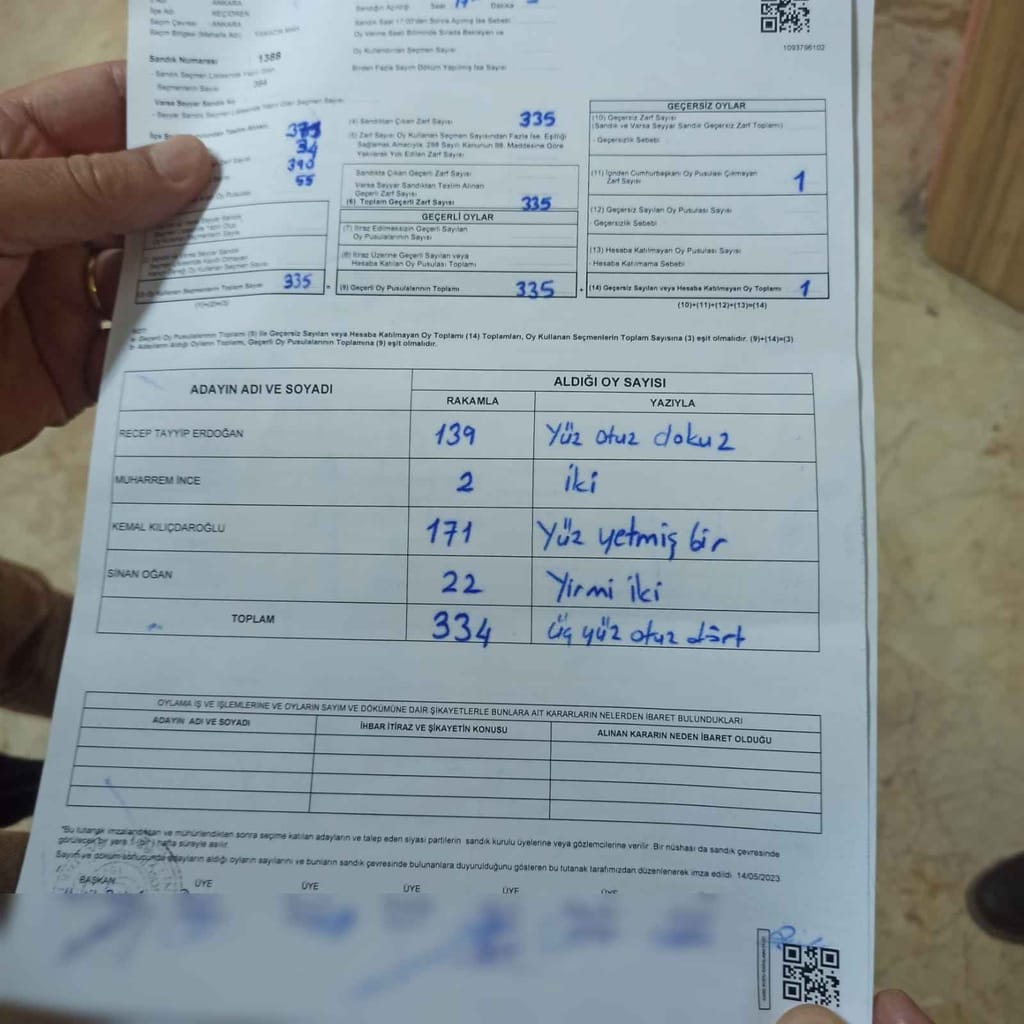 ANKARA
KEÇİÖREN
ANKARA
Sandık Numarası 1388
384
1093796102
(4) Sandıktan Çıkan Zarf Sayısı 335
(5) Zarf Sayısı Oy Kullanan Seçmen Sayısından Fazla İse, Eşitliği
Sağlamak Amacıyla, 298 Sayılı Kanunun 98. Maddesine Göre
Yakılarak Yok Edilen Zarf Sayısı
34
390
55
Sandıkta Çıkan Geçerli Zarf Sayısı
Varsa Seyyar Sandıktan Teslim Alınan
Geçerli Zarf Sayısı
(6) Toplam Geçerli Zarf Sayısı 335
GEÇERLİ OYLAR
(7) İtiraz Edilmeksizin Geçerli Sayılan
Oy Pusulalarının Sayısı
(8) İtiraz Üzerine Geçerli Sayılan veya
Hesaba Katılan Oy Pusulası Toplamı
335 = (9) Geçerli Oy Pusulalarının Toplamı 335 +
(1)+(2)=(3)
GEÇERSİZ OYLAR
(10) Geçersiz Zarf Sayısı
(Sandık ve Varsa Seyyar Sandık Geçersiz Zarf Toplamı)
- Geçersizlik Sebebi
(11) İçinden Cumhurbaşkanı Oy Pusulası Çıkmayan
Zarf Sayısı 1
(12) Geçersiz Sayılan Oy Pusulası Sayısı
- Geçersizlik Sebebi
(13) Hesaba Katılmayan Oy Pusulası Sayısı
- Hesaba Katılmama Sebebi
(14) Geçersiz Sayılan veya Hesaba Katılmayan Oy Toplamı 1
(10)+(11)+(12)+(13)=(14)
NOT:
a- Geçerli Oy Pusulalarının Toplamı (9) ile Geçersiz Sayılan veya Hesaba Katılmayan Oy Toplamı (14) Toplamları, Oy Kullanan Seçmenlerin Toplam Sayısına (3) eşit olmalıdır. (9)+(14)=(3)
b- Adayların Aldığı Oyların Toplamı, Geçerli Oy Pusulalarının Toplamına (9) eşit olmalıdır.
ADAYIN ADI VE SOYADI ALDIĞI OY SAYISI
RAKAMLA YAZIYLA
RECEP TAYYİP ERDOĞAN 139 Yüz otuz dokuz
MUHARREM İNCE 2 iki
KEMAL KILIÇDAROĞLU 171 Yüz yetmiş bir
SİNAN OĞAN 22 Yirmi iki
TOPLAM 334 üç yüz otuz dört
OYLAMA İŞ VE İŞLEMLERİNE VE OYLARIN SAYIM VE DÖKÜMÜNE DAİR ŞİKAYETLERLE BUNLARA AİT KARARLARIN NELERDEN İBARET BULUNDUKLARI
ADAYIN ADI VE SOYADI İHBAR İTİRAZ VE ŞİKAYETİN KONUSU ALINAN KARARIN NEDEN İBARET OLDUĞU
"Bu tutanak imzalandıktan ve mühürlendikten sonra seçime katılan adayların ve talep eden siyasi partilerin sandık kurulu üyelerine veya gözlemcilerine verilir. Bir nüshası da sandık çevresinde
görülecek bir yere 1 (bir) hafta süreyle asılır.
Sayım ve döküm sonucunda adayların aldığı oyların sayılarını ve bunların sandık çevresinde bulunanlara duyurulduğunu gösteren bu tutanak tarafımızdan düzenlenerek imza edildi. 14/05/2023
BAŞKAN ÜYE ÜYE ÜYE ÜYE ÜYE